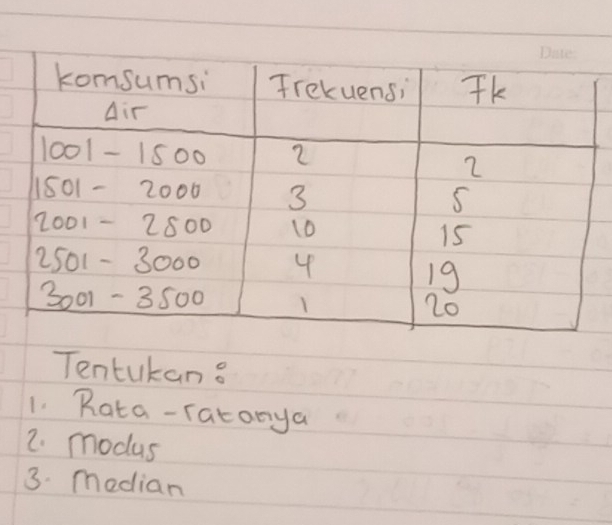 Date:
Komsumsi Air Frekuensi Fk
1001 - 1500 2 2
1501 - 2000 3 5
2001 - 2500 10 15
2501 - 3000 4 19
3001 - 3500 1 20
Tentukan :
1. Rata - ratanya
2. Modus
3. Median